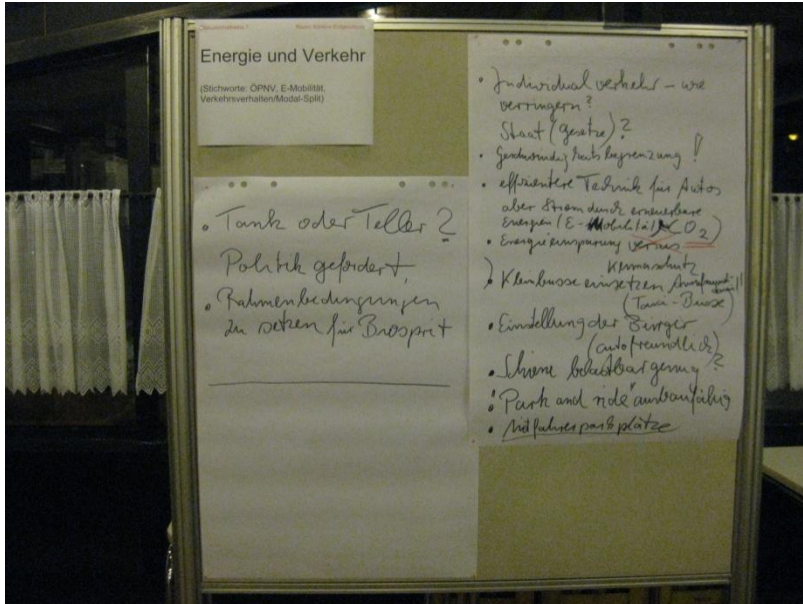 Energie und Verkehr
(Stichworte: ÖPNV, E-Mobilität,
Verkehrsverhalten/Modal-Split)
• Tank oder Teller?
Politik gefordert,
• Rahmenbedingungen
zu setzen für Biosprit
• Individualverkehr – wie
verringern?
Staat (Gesetze)?
• Geschwindigkeitsbegrenzung!
• effizientere Technik für Autos
aber Strom durch erneuerbare
Energien (E-Mobilität CO2)
• Energieeinsparung versus
Klimaschutz
• Kleinbusse einsetzen
(Taxi-Busse)
• Einstellung der Bürger
(autofreundlich)
• Schiene belastbar genug?
• "Park and ride" ausbaufähig
• Mitfahrerparkplätze